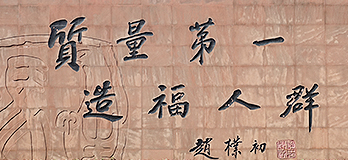 質量第一
造福人群
趙樸初